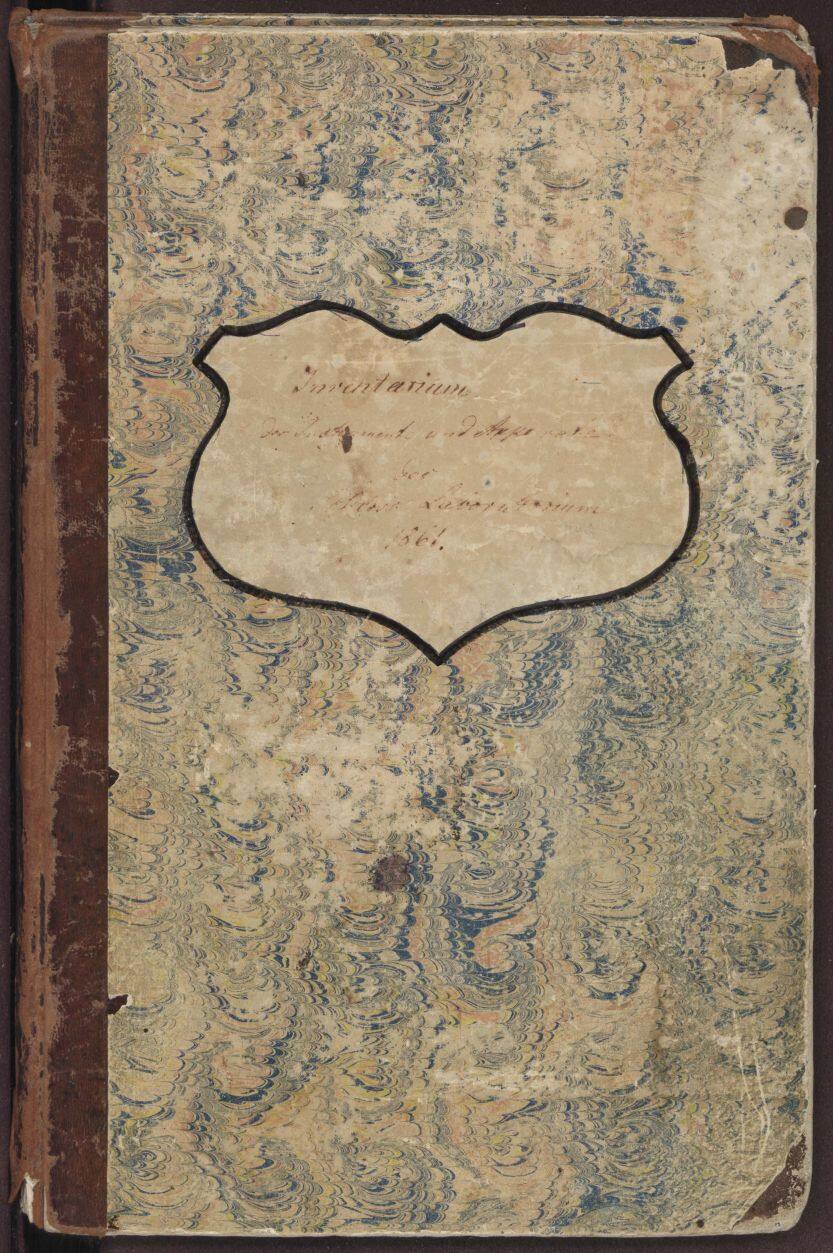 Inventarium
der Instrumente und Apparate
des
Laboratorium
1861.